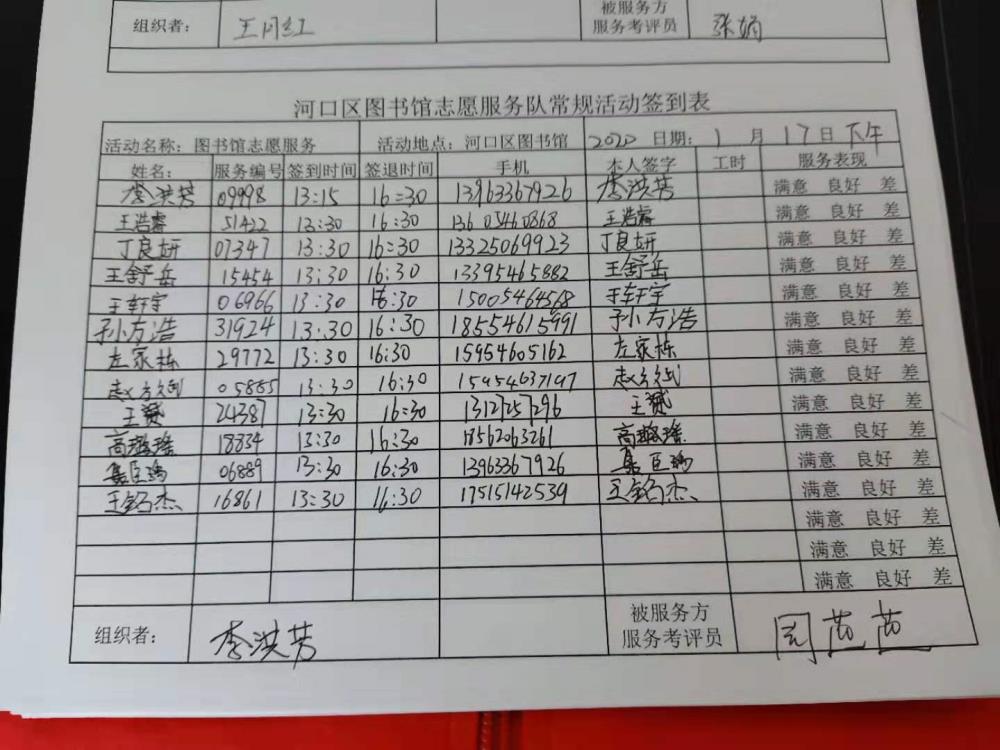 组织者： 王同红 被服务方 服务考评员 张娟
河口区图书馆志愿服务队常规活动签到表
活动名称：图书馆志愿服务 活动地点：河口区图书馆 2020 日期：1 月 17日 下午
姓名： 服务编号 签到时间 签退时间 手机 本人签字 工时 服务表现
李洪芳 09998 13:15 16:30 13963367926 李洪芳 满意 良好 差
王浩睿 51422 13:30 16:30 13605460868 王浩睿 满意 良好 差
丁良妍 07347 13:30 16:30 13325069923 丁良妍 满意 良好 差
王舒岳 15454 13:30 16:30 13395465882 王舒岳 满意 良好 差
王轩宇 06966 13:30 16:30 15005464568 王轩宇 满意 良好 差
孙方浩 31924 13:30 16:30 18554615991 孙方浩 满意 良好 差
左家栋 29772 13:30 16:30 15954605162 左家栋 满意 良好 差
05885 13:30 16:30 15954637197 满意 良好 差
王赟 24387 13:30 16:30 13127257296 王赟 满意 良好 差
高璐瑶 18334 13:30 16:30 18562063261 高璐瑶 满意 良好 差
06889 13:30 16:30 13963367926 满意 良好 差
王铭杰 16861 13:30 16:30 17515142539 王铭杰 满意 良好 差
满意 良好 差
满意 良好 差
满意 良好 差
组织者： 李洪芳 被服务方 服务考评员 周茴茴